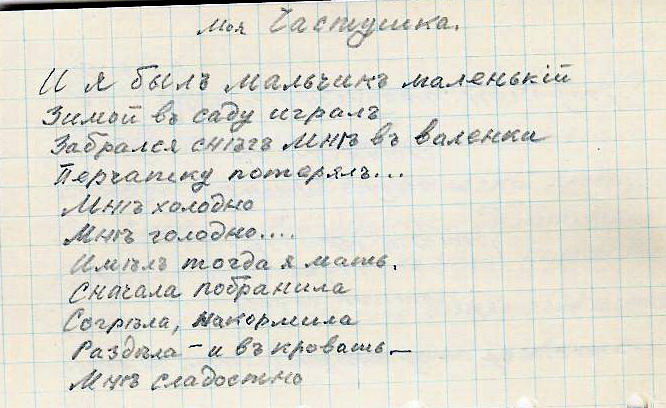 Моя Частушка.
И я былъ мальчикъ маленькій
Зимой въ саду игралъ
Забрался снѣгъ мнѣ въ валенки
Перчатку потерялъ...
Мнѣ холодно
Мнѣ голодно....
Имѣлъ тогда я мать.
Сначала побранила
Согрѣла, накормила
Раздѣла – и въ кровать –
Мнѣ сладостно